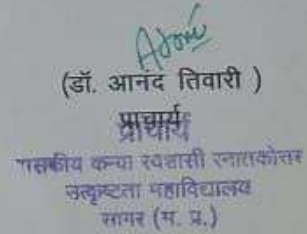 (डॉ. आनंद तिवारी )
प्राचार्य
प्राचार्य
शासकीय कन्या स्वशासी स्नातकोत्तर
उत्कृष्टता महाविद्यालय
सागर (म. प्र.)